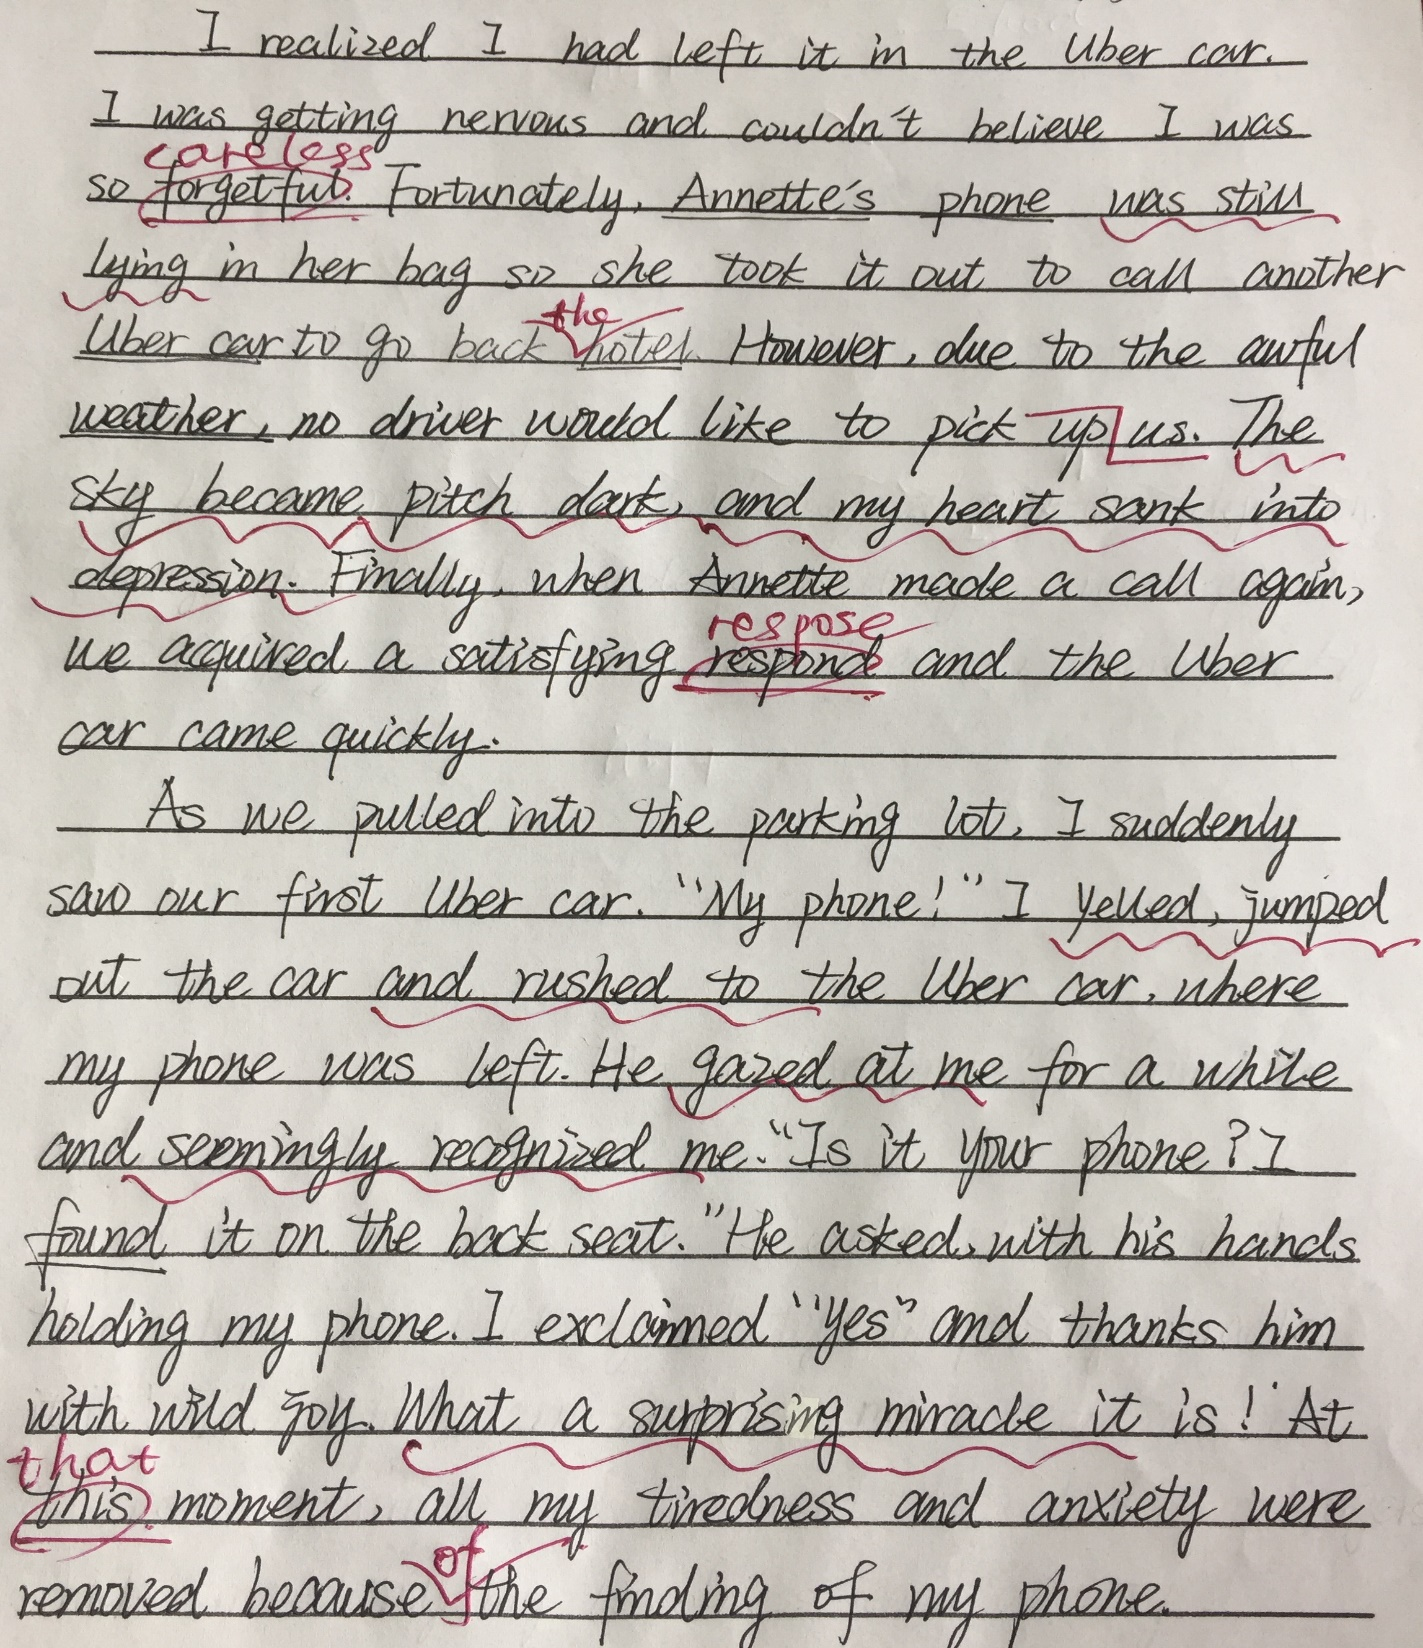 I realized I had left it in the Uber car.
I was getting nervous and couldn't believe I was
careless
so forgetful. Fortunately, Annette's phone was still
lying in her bag so she took it out to call another
the
Uber car to go back hotel. However, due to the awful
weather, no driver would like to pick up us. The
sky became pitch dark, and my heart sank into
depression. Finally, when Annette made a call again,
respose
we acquired a satisfying respond and the Uber
car came quickly.
As we pulled into the parking lot, I suddenly
saw our first Uber car. "My phone!" I yelled, jumped
out the car and rushed to the Uber car, where
my phone was left. He gazed at me for a while
and seemingly recognized me. "Is it your phone? I
found it on the back seat." He asked, with his hands
holding my phone. I exclaimed "Yes" and thanks him
with wild joy. What a surprising miracle it is! At
that
this moment, all my tiredness and anxiety were
of
removed because the finding of my phone.